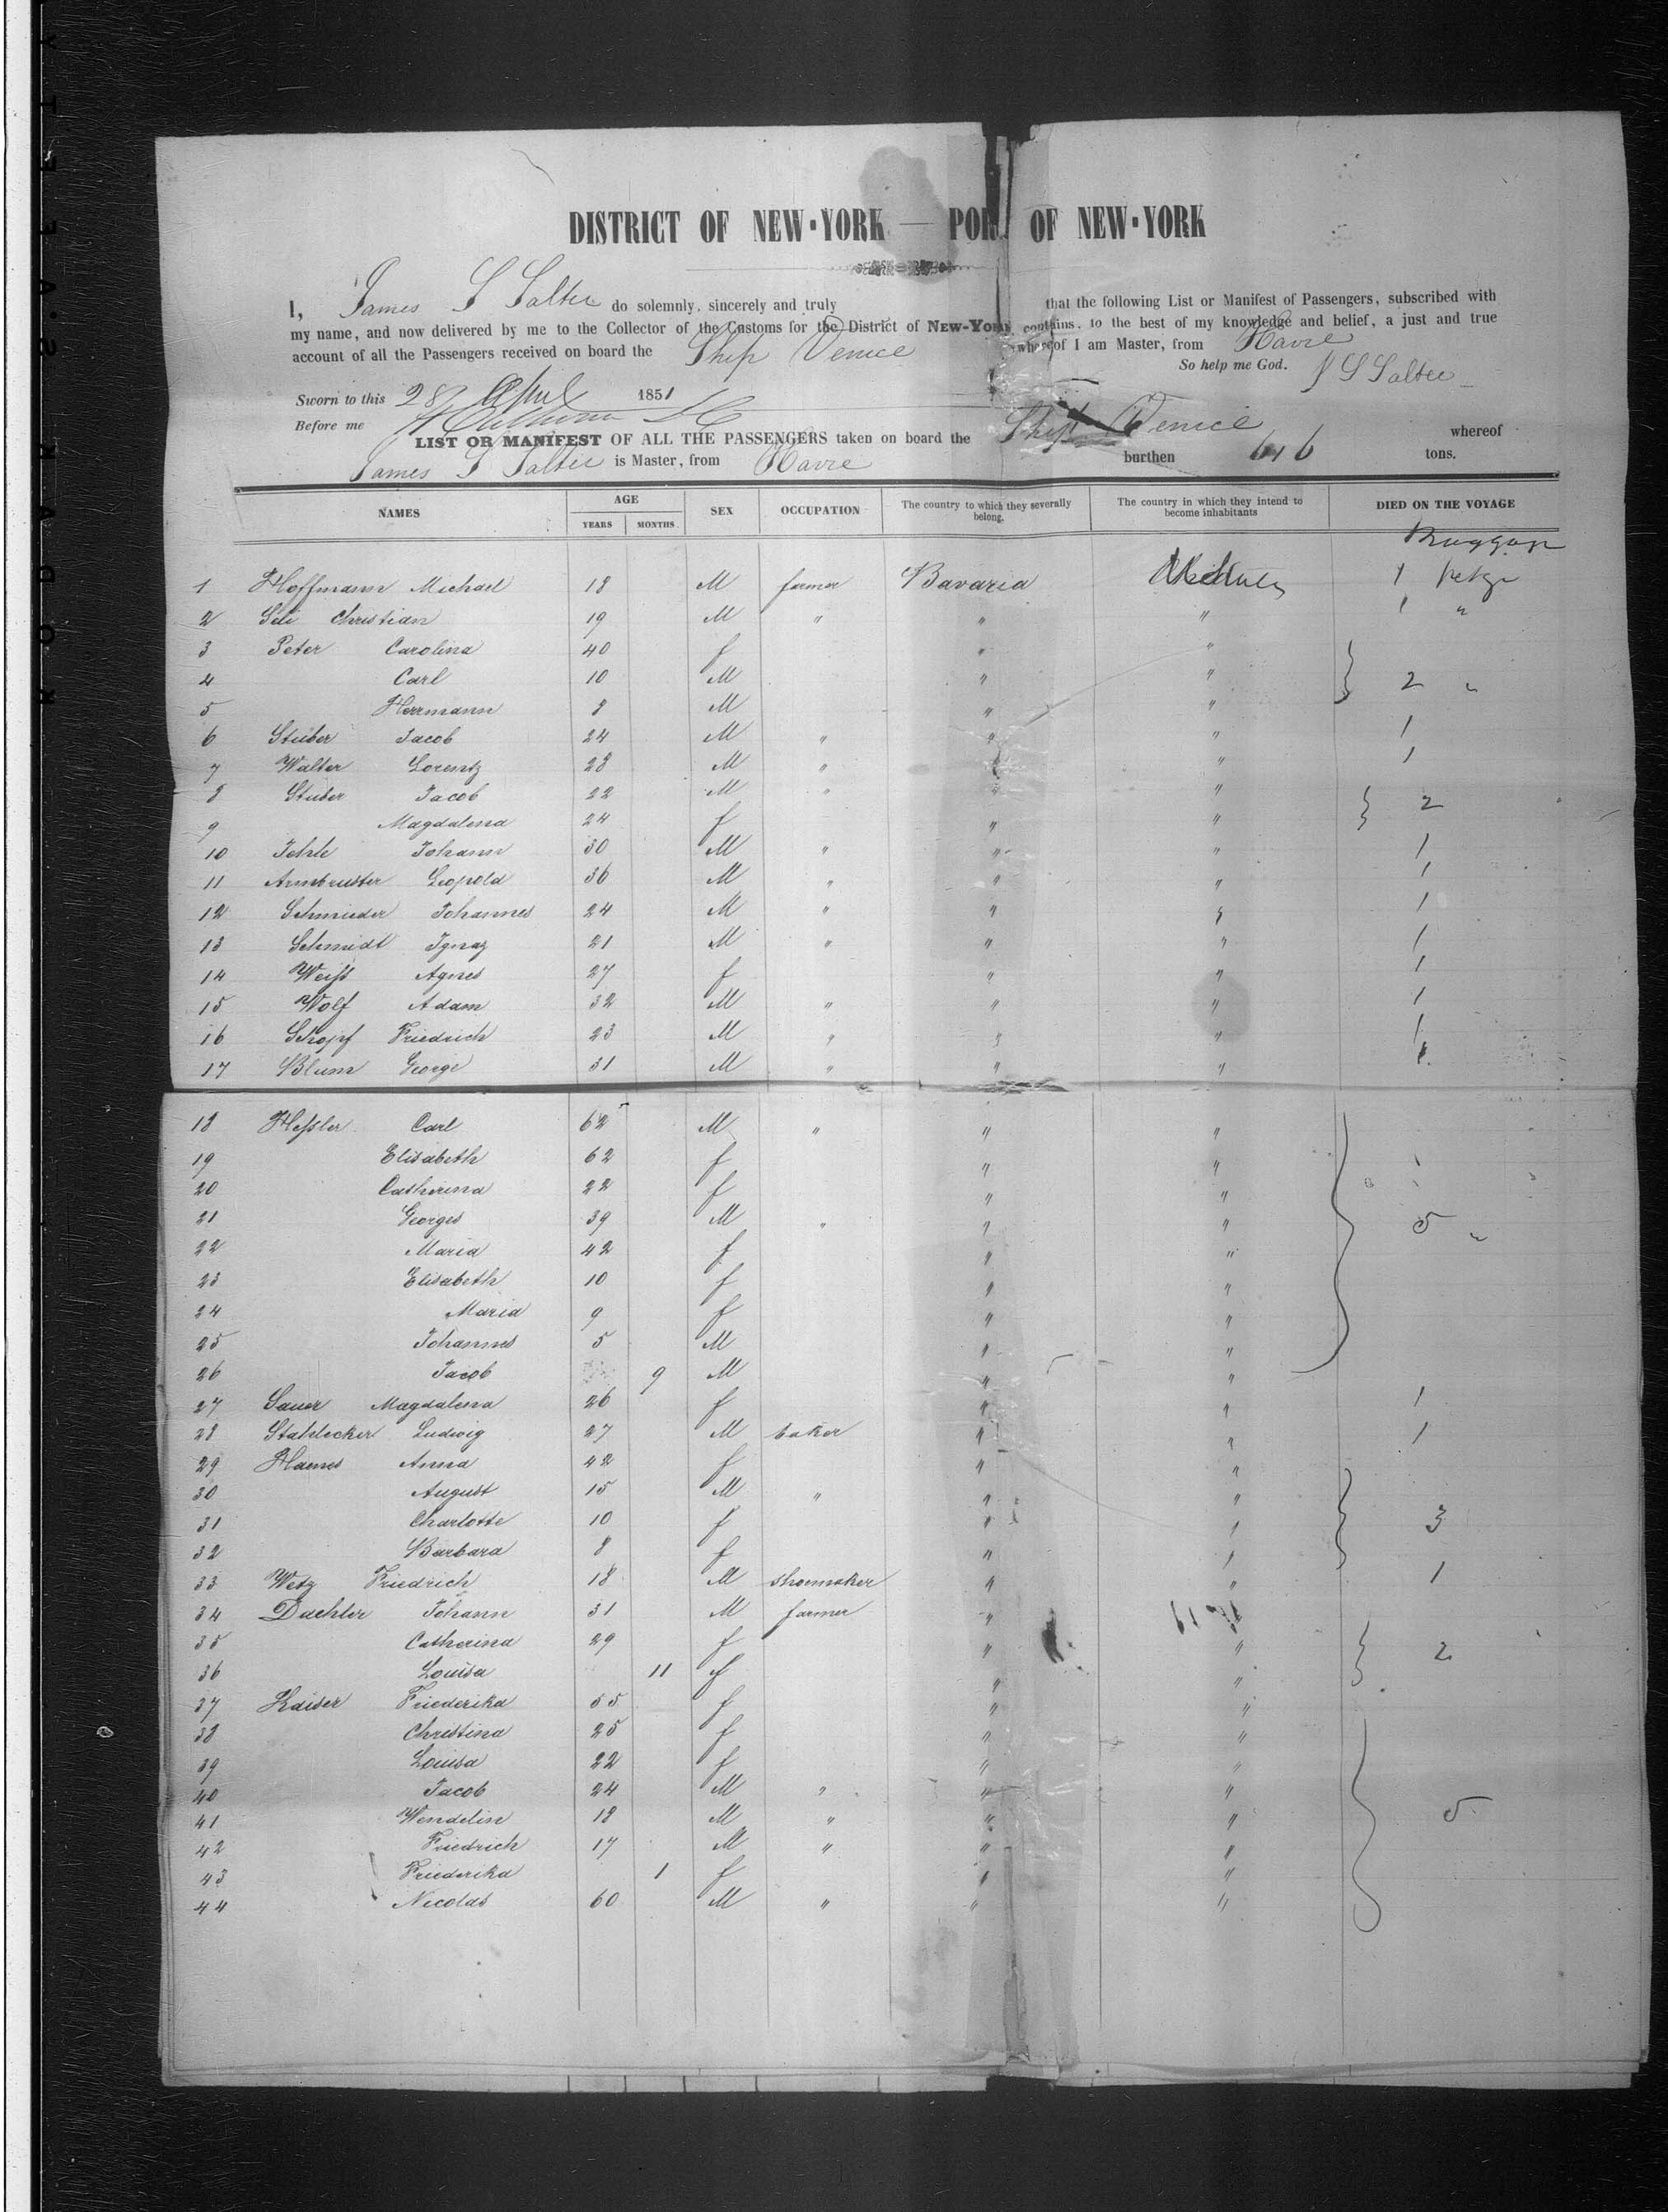 DISTRICT OF NEW-YORK — PORT OF NEW-YORK
I, James S Salter do solemnly, sincerely and truly that the following List or Manifest of Passengers, subscribed with
my name, and now delivered by me to the Collector of the Customs for the District of NEW-YORK, contains, to the best of my knowledge and belief, a just and true
account of all the Passengers received on board the Ship Venice whereof I am Master, from Havre
So help me God. J S Salter
Sworn to this 28 April 1851
Before me
LIST OR MANIFEST OF ALL THE PASSENGERS taken on board the Ship Venice whereof
James S Salter is Master, from Havre burthen 616 tons.
NAMES AGE YEARS MONTHS SEX OCCUPATION The country to which they severally belong. The country in which they intend to become inhabitants DIED ON THE VOYAGE
1 Hoffmann Michael 18 M farmer Bavaria 1
2 Christian 19 M " " " 1 "
3 Peter Carolina 40 f " "
4 Carl 10 M " " 2 "
5 Herrmann 8 M " "
6 Stuber Jacob 24 M " " " 1
7 Walter Lorentz 28 M " " " 1
8 Stuber Jacob 22 M " " " 2
9 Magdalena 24 f " "
10 Johann 30 M " " " 1
11 Armbruster Leopold 36 M " " " 1
12 Schmieder Johannes 24 M " " " 1
13 Schmidt Ignaz 21 M " " " 1
14 Weiss Agnes 27 f " " 1
15 Wolf Adam 32 M " " " 1
16 Friedrich 23 M " " " 1
17 Blum George 31 M " " " 1
18 Hessler Carl 62 M " " "
19 Elisabeth 62 f " "
20 Catherina 22 f " "
21 Georges 39 M " " " 5 "
22 Maria 42 f " "
23 Elisabeth 10 f " "
24 Maria 9 f " "
25 Johannes 5 M " "
26 Jacob 9 M " "
27 Sauer Magdalena 26 f " " 1
28 Stahlecker Ludwig 27 M baker " " 1
29 Haines Anna 42 f " "
30 August 15 M " " "
31 Charlotte 10 f " " 3
32 Barbara 8 f " "
33 Wetz Friedrich 18 M shoemaker " " 1
34 Daehler Johann 31 M farmer " "
35 Catherina 29 f " " 2
36 Louisa 11 f " "
37 Kaiser Friederika 55 f " "
38 Christina 25 f " "
39 Louisa 22 f " "
40 Jacob 24 M " " "
41 Wendelin 18 M " " " 5
42 Friedrich 17 M " " "
43 Friederika 1 f " "
44 Nicolas 60 M " " "